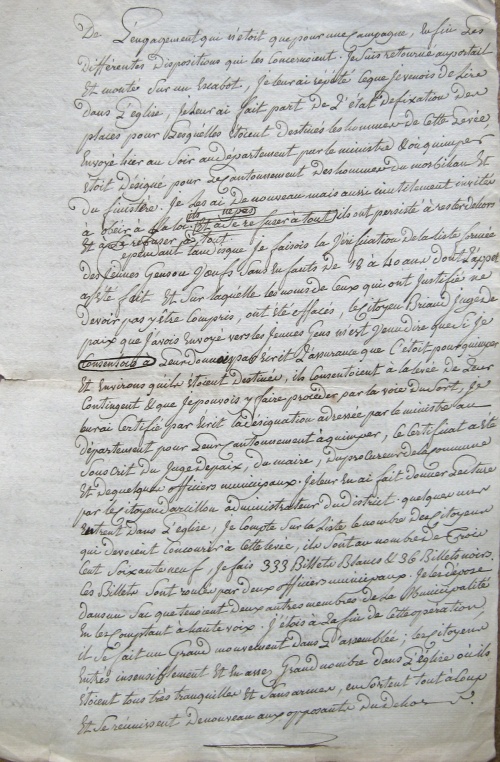 De L'engagement qui n'etoit que pour une Campagne, Enfin Les
différentes Dispositions qui les concernoient. Je suis retourné au portail
Et monté Sur un Escabot, Je leur ai répété ce que je venois de Lire
Dans L'église, Je leur ai fait part De L'état de fixation Des
places pour Lesquelles étoient destinés les hommes de Cette Levée
Envoyé hier au Soir au département par le ministre & où quimper
étoit Désigné pour Le Cantonnement Des hommes du morbihan Et
Du finistère. Je Les ai De nouveau mais aussi inutilement invités
à obéir à La loi Et à Se refuser à tout ils ont persisté à rester dehors
Et à Se refuser à tout
Cependant tandisque Je faisois la Vérification de la Liste
des Jeunes Gens ou Veufs Sans Enfants de 18 à 40 ans dont L'appel
a été fait Et Sur laquelle les noms de Ceux qui ont Justifié ne
Devoir pas y être Compris, ont été effacés, le Citoyen Briand Juge de
paix que J'avois Envoyé vers les Jeunes Gens m'est venu dire que Si Je
Consentois à Leur Donner par Ecrit L'assurance que C'étoit pour quimper
Et Environs qu'ils étoient Destinés, ils Consentoient à la Levée de Leur
Contingent & que Je pouvois y faire procéder par la voie du Sort, Je
leur ai Certifié par Ecrit la Désignation adressée par le ministre au
département pour Leur Cantonnement à quimper, Ce Certificat a été
Souscrit Du Juge De paix, du maire, Du procureur de la Commune
Et De quelques officiers municipaux. Je leur En ai fait Donner Lecture
par le Citoyen administrateur du District. quelques uns
Entrent Dans L'église, Je Compte Sur la Liste le nombre Des Citoyens
qui devoient Concourir à Cette levée, ils Sont au nombre de Trois
Cent Soixante neuf, Je fais 333 Billets Blancs & 36 Billets noirs
Ces Billets Sont roulés par deux officiers municipaux. Je les dépose
dans un Sac que tenoient deux autres membres de la Municipalité
En les Comptant à haute voix. J'étois à La fin de Cette opération,
il Se fait un Grand mouvement Dans L'assemblée; les Citoyens
Entrés insensiblement Et En assez Grand nombre dans L'église où ils
étoient tous très tranquilles Et Sans armes, en Sortent tout à Coup
Et Se réunissent De nouveau aux opposants Du dehors